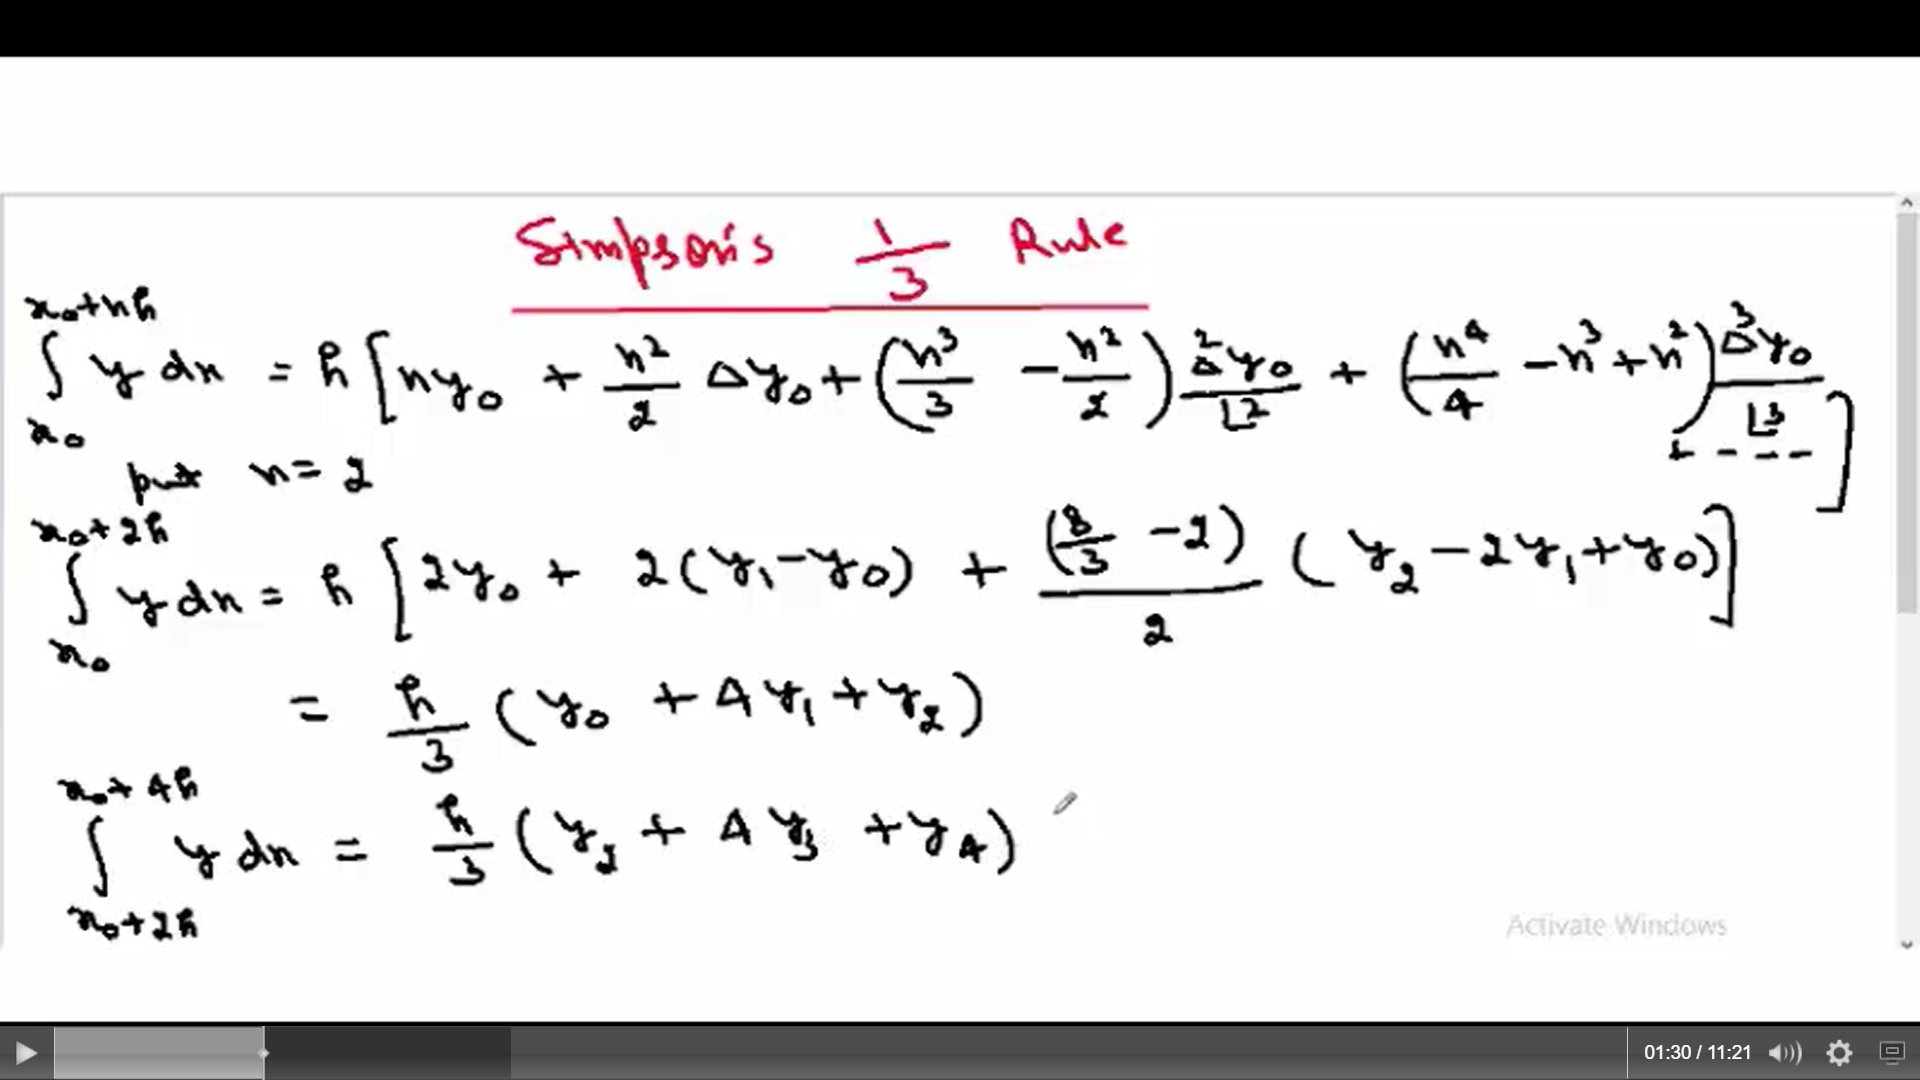 Simpson's 1/3 Rule
∫_{x₀}^{x₀+nh} y dx = h [ n y₀ + n²/2 Δy₀ + ( n³/3 − n²/2 ) Δ²y₀/⌊2 + ( n⁴/4 − n³ + n² ) Δ³y₀/⌊3 + - - - ]
put n = 2
∫_{x₀}^{x₀+2h} y dx = h [ 2y₀ + 2(y₁ − y₀) + (8/3 − 2)/2 ( y₂ − 2y₁ + y₀ ) ]
= h/3 ( y₀ + 4y₁ + y₂ )
∫_{x₀+2h}^{x₀+4h} y dx = h/3 ( y₂ + 4y₃ + y₄ )
Activate Windows
01:30 / 11:21